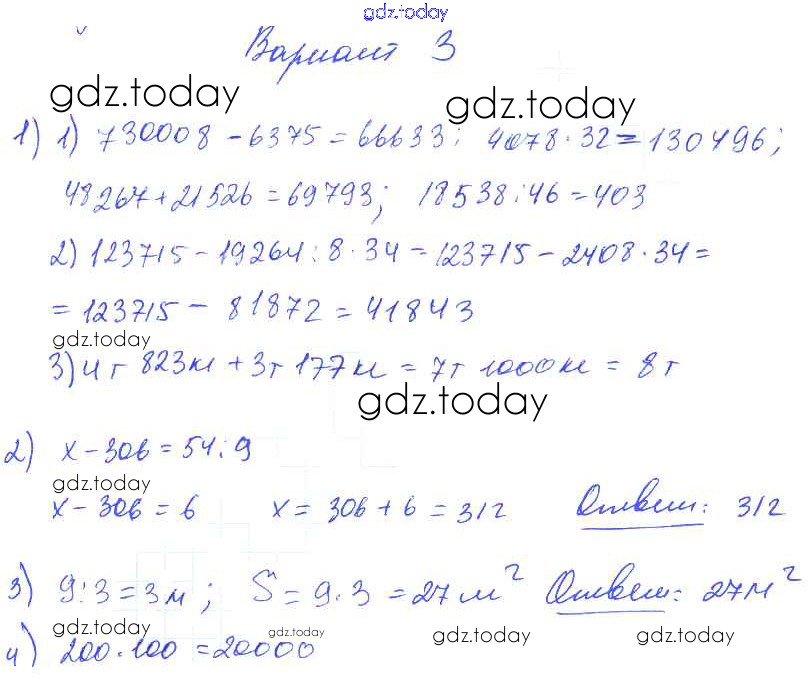 gdz.today
Вариант 3
gdz.today gdz.today
1) 1) 730008 - 6375 = 66633; 4078 · 32 = 130496;
48267 + 21526 = 69793; 18538 : 46 = 403
2) 123715 - 19264 : 8 · 34 = 123715 - 2408 · 34 =
= 123715 - 81872 = 41843
gdz.today
3) 4т 823кг + 3т 177кг = 7т 1000кг = 8т
gdz.today
2) x - 306 = 54 : 9
gdz.today
x - 306 = 6 x = 306 + 6 = 312 Ответ: 312
3) 9 : 3 = 3м; S = 9 · 3 = 27м² Ответ: 27м²
gdz.today gdz.today gdz.today gdz.today
4) 200 · 100 = 20000